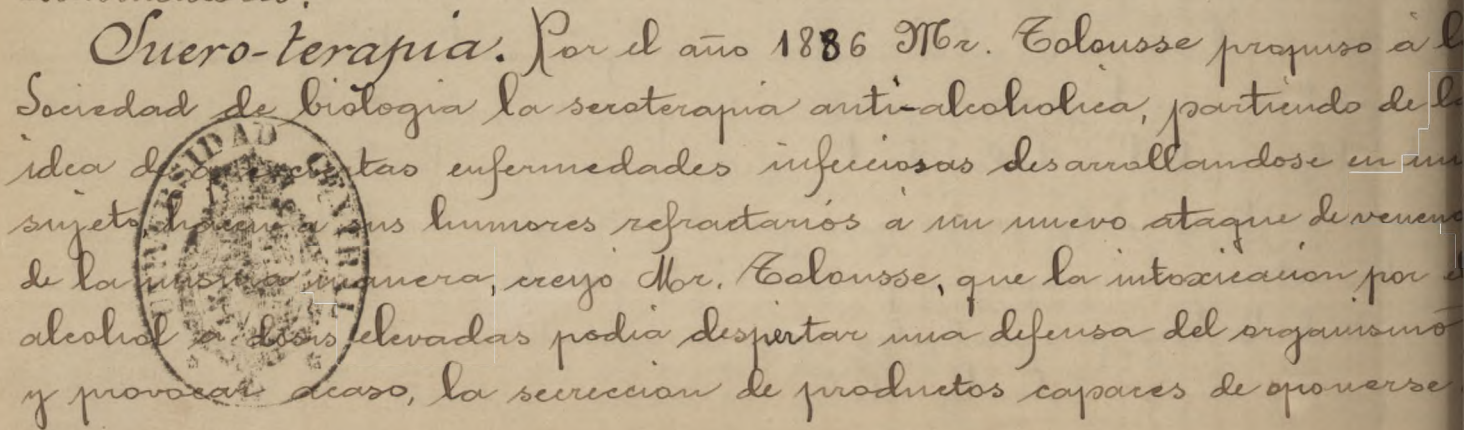 Suero-terapia. Por el año 1886 Mr. Tolousse propuso á l
Sociedad de biologia la seroterapia anti-alcoholica, partiendo de l
idea d tas enfermedades infecciosas desarrollandose en un
sujeto, hacen a sus humores refractarios á un nuevo ataque de veneno
de la misma manera, creyo Mr. Tolousse, que la intoxicacion por e
alcohol a dosis elevadas podia despertar una defensa del organismo
y provocar acaso, la secreccion de productos capaces de oponerse
UNIVERSIDAD CENTRAL